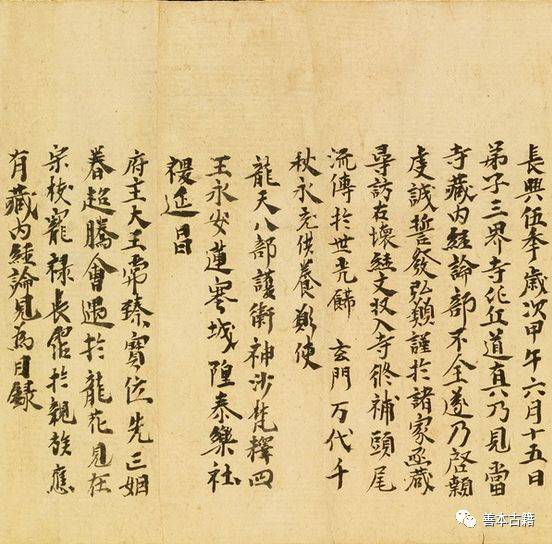 長興伍年歲次甲午六月十五日
弟子三界寺比丘道真乃見當
寺藏內経論部不全遂乃啓顙
虔誠誓發弘願謹於諸家函藏
尋訪古壞経文収入寺修補頭尾
流傳於世光飾 玄門万代千
秋永充供養願使
龍天八部護衛神沙梵釋四
王永安蓮塞城隍泰樂社
稷延昌
府主大王常臻寶位先亡姻
眷超騰會遇於龍花見在
宗枝寵祿長霑於親族應
有藏內経論見為目録
善本古籍